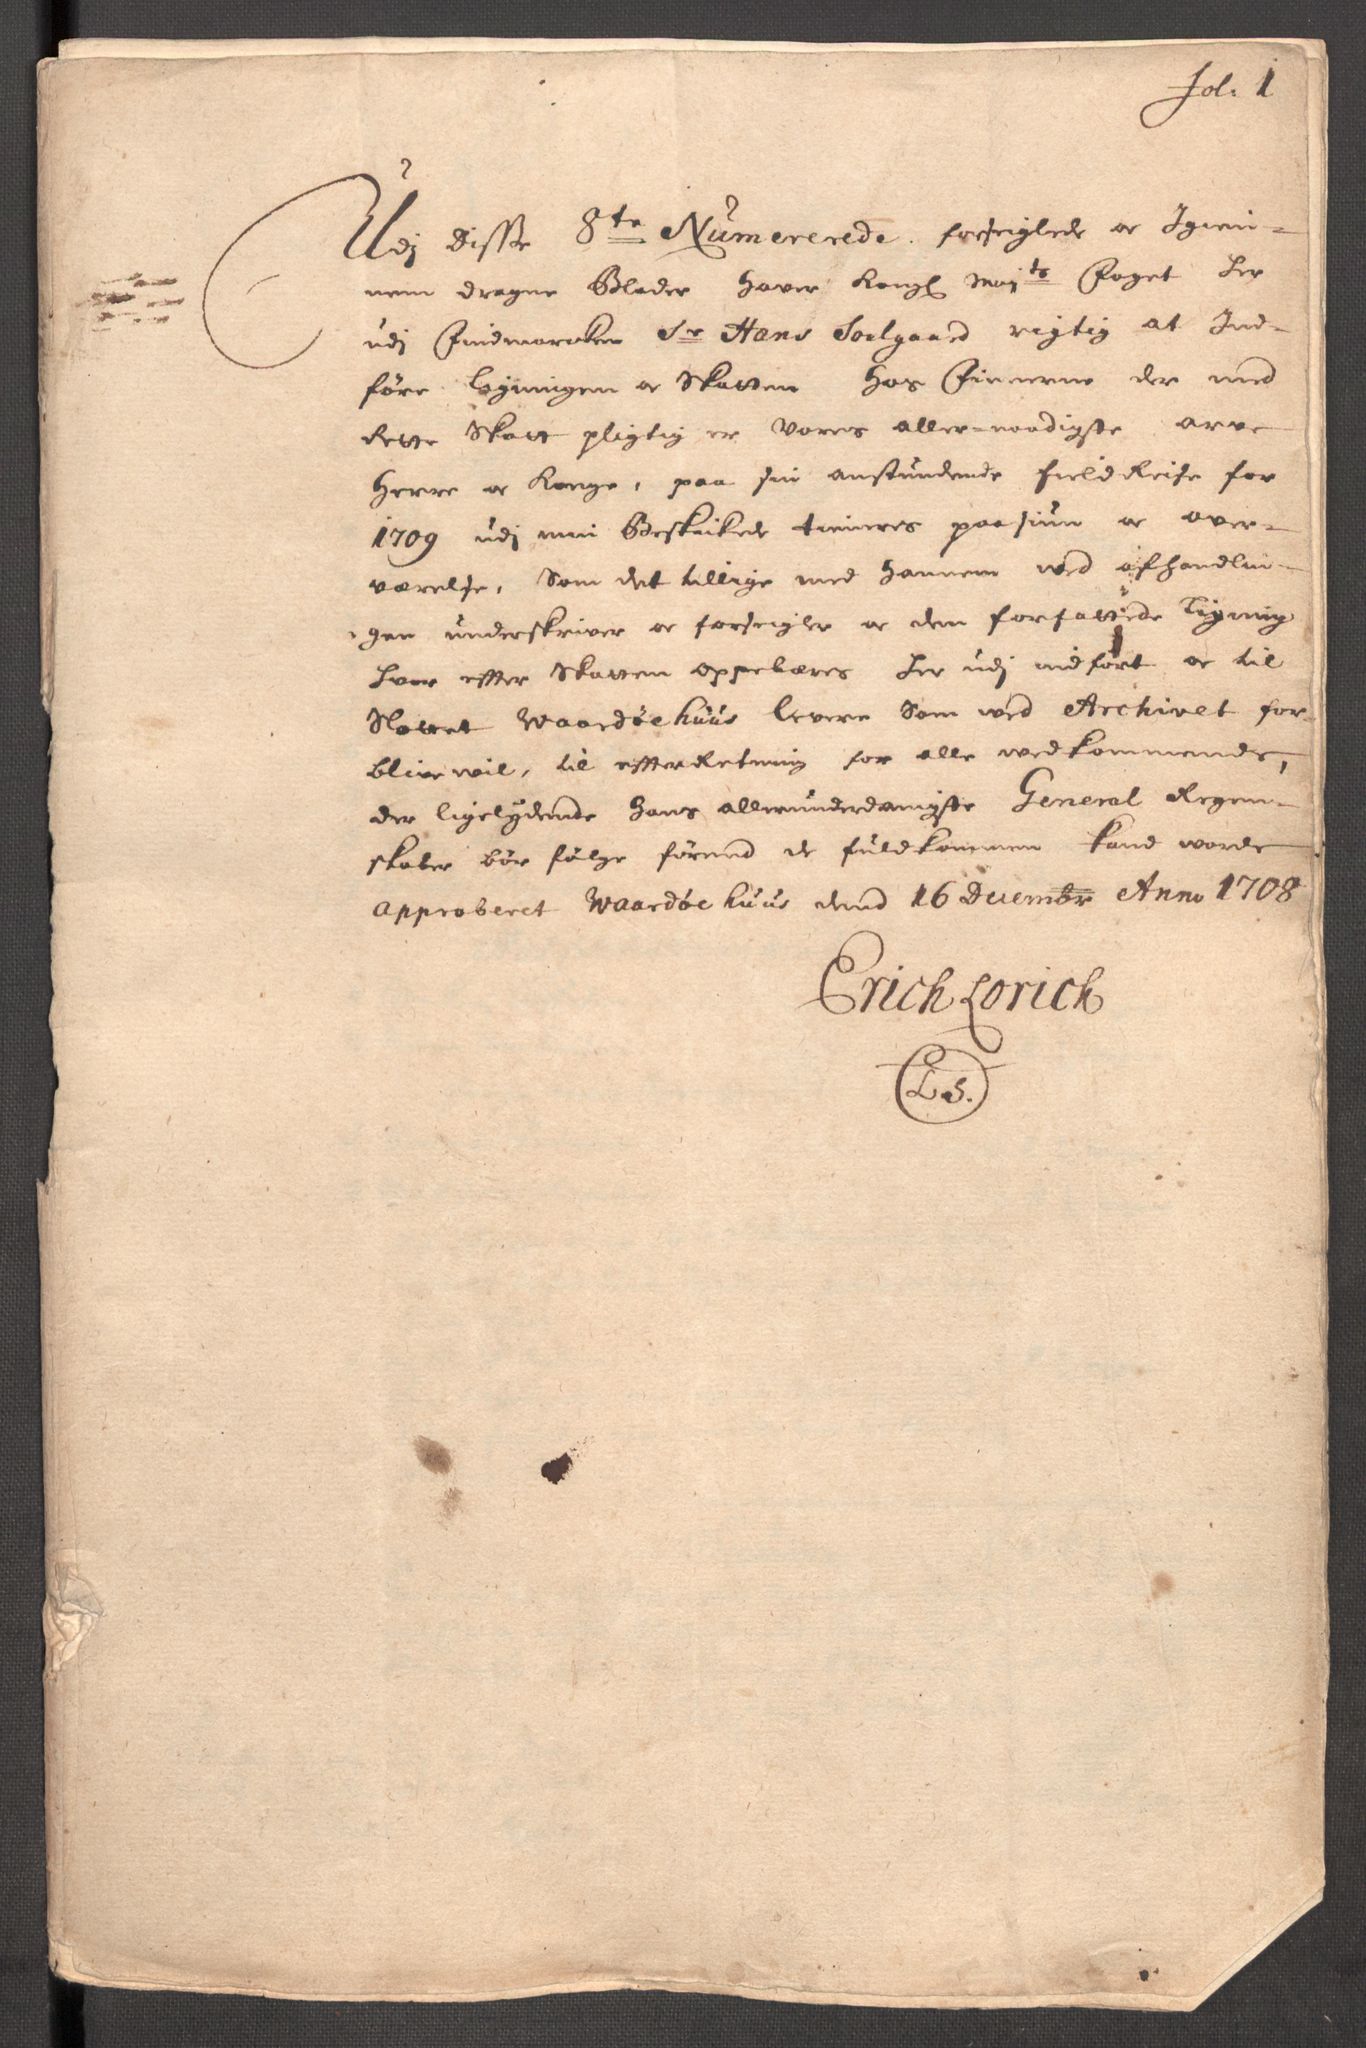 fol: 1
Udj disse 8te Nümererede. forseiglede oc Igien-
nem dragne Blader haver Kongl Mayts Foget her
udj Findmarcken Sr Hans Soelgaard rigtig at Ind-
føre legningen oc Skatten hos Finnerne der med
Rette Skatt pligtig er Vores aller-naadigste arve
Herre oc Konge, paa sin anstundende field Reise for
1709 udj min Beskikede tieneres paasiun oc over-
værelse, Som det tillige med hannem ved afhandlin-
gen underskriver oc forseigler oc dem forfattede Ligning
hvor effter Skatten oppebæres her udj indført oc til
Slottet Waardøehuus levere Som ved Archivet for
blive vil, til effterRetning for alle vedkommende,
der ligelydende hans allerunderdanigste General Regen-
skaber bør følge førend de fuldkommen kand worde
approberet Waardøehuus dend 16 Decembr Anno 1708
Erich Lorich
L S.